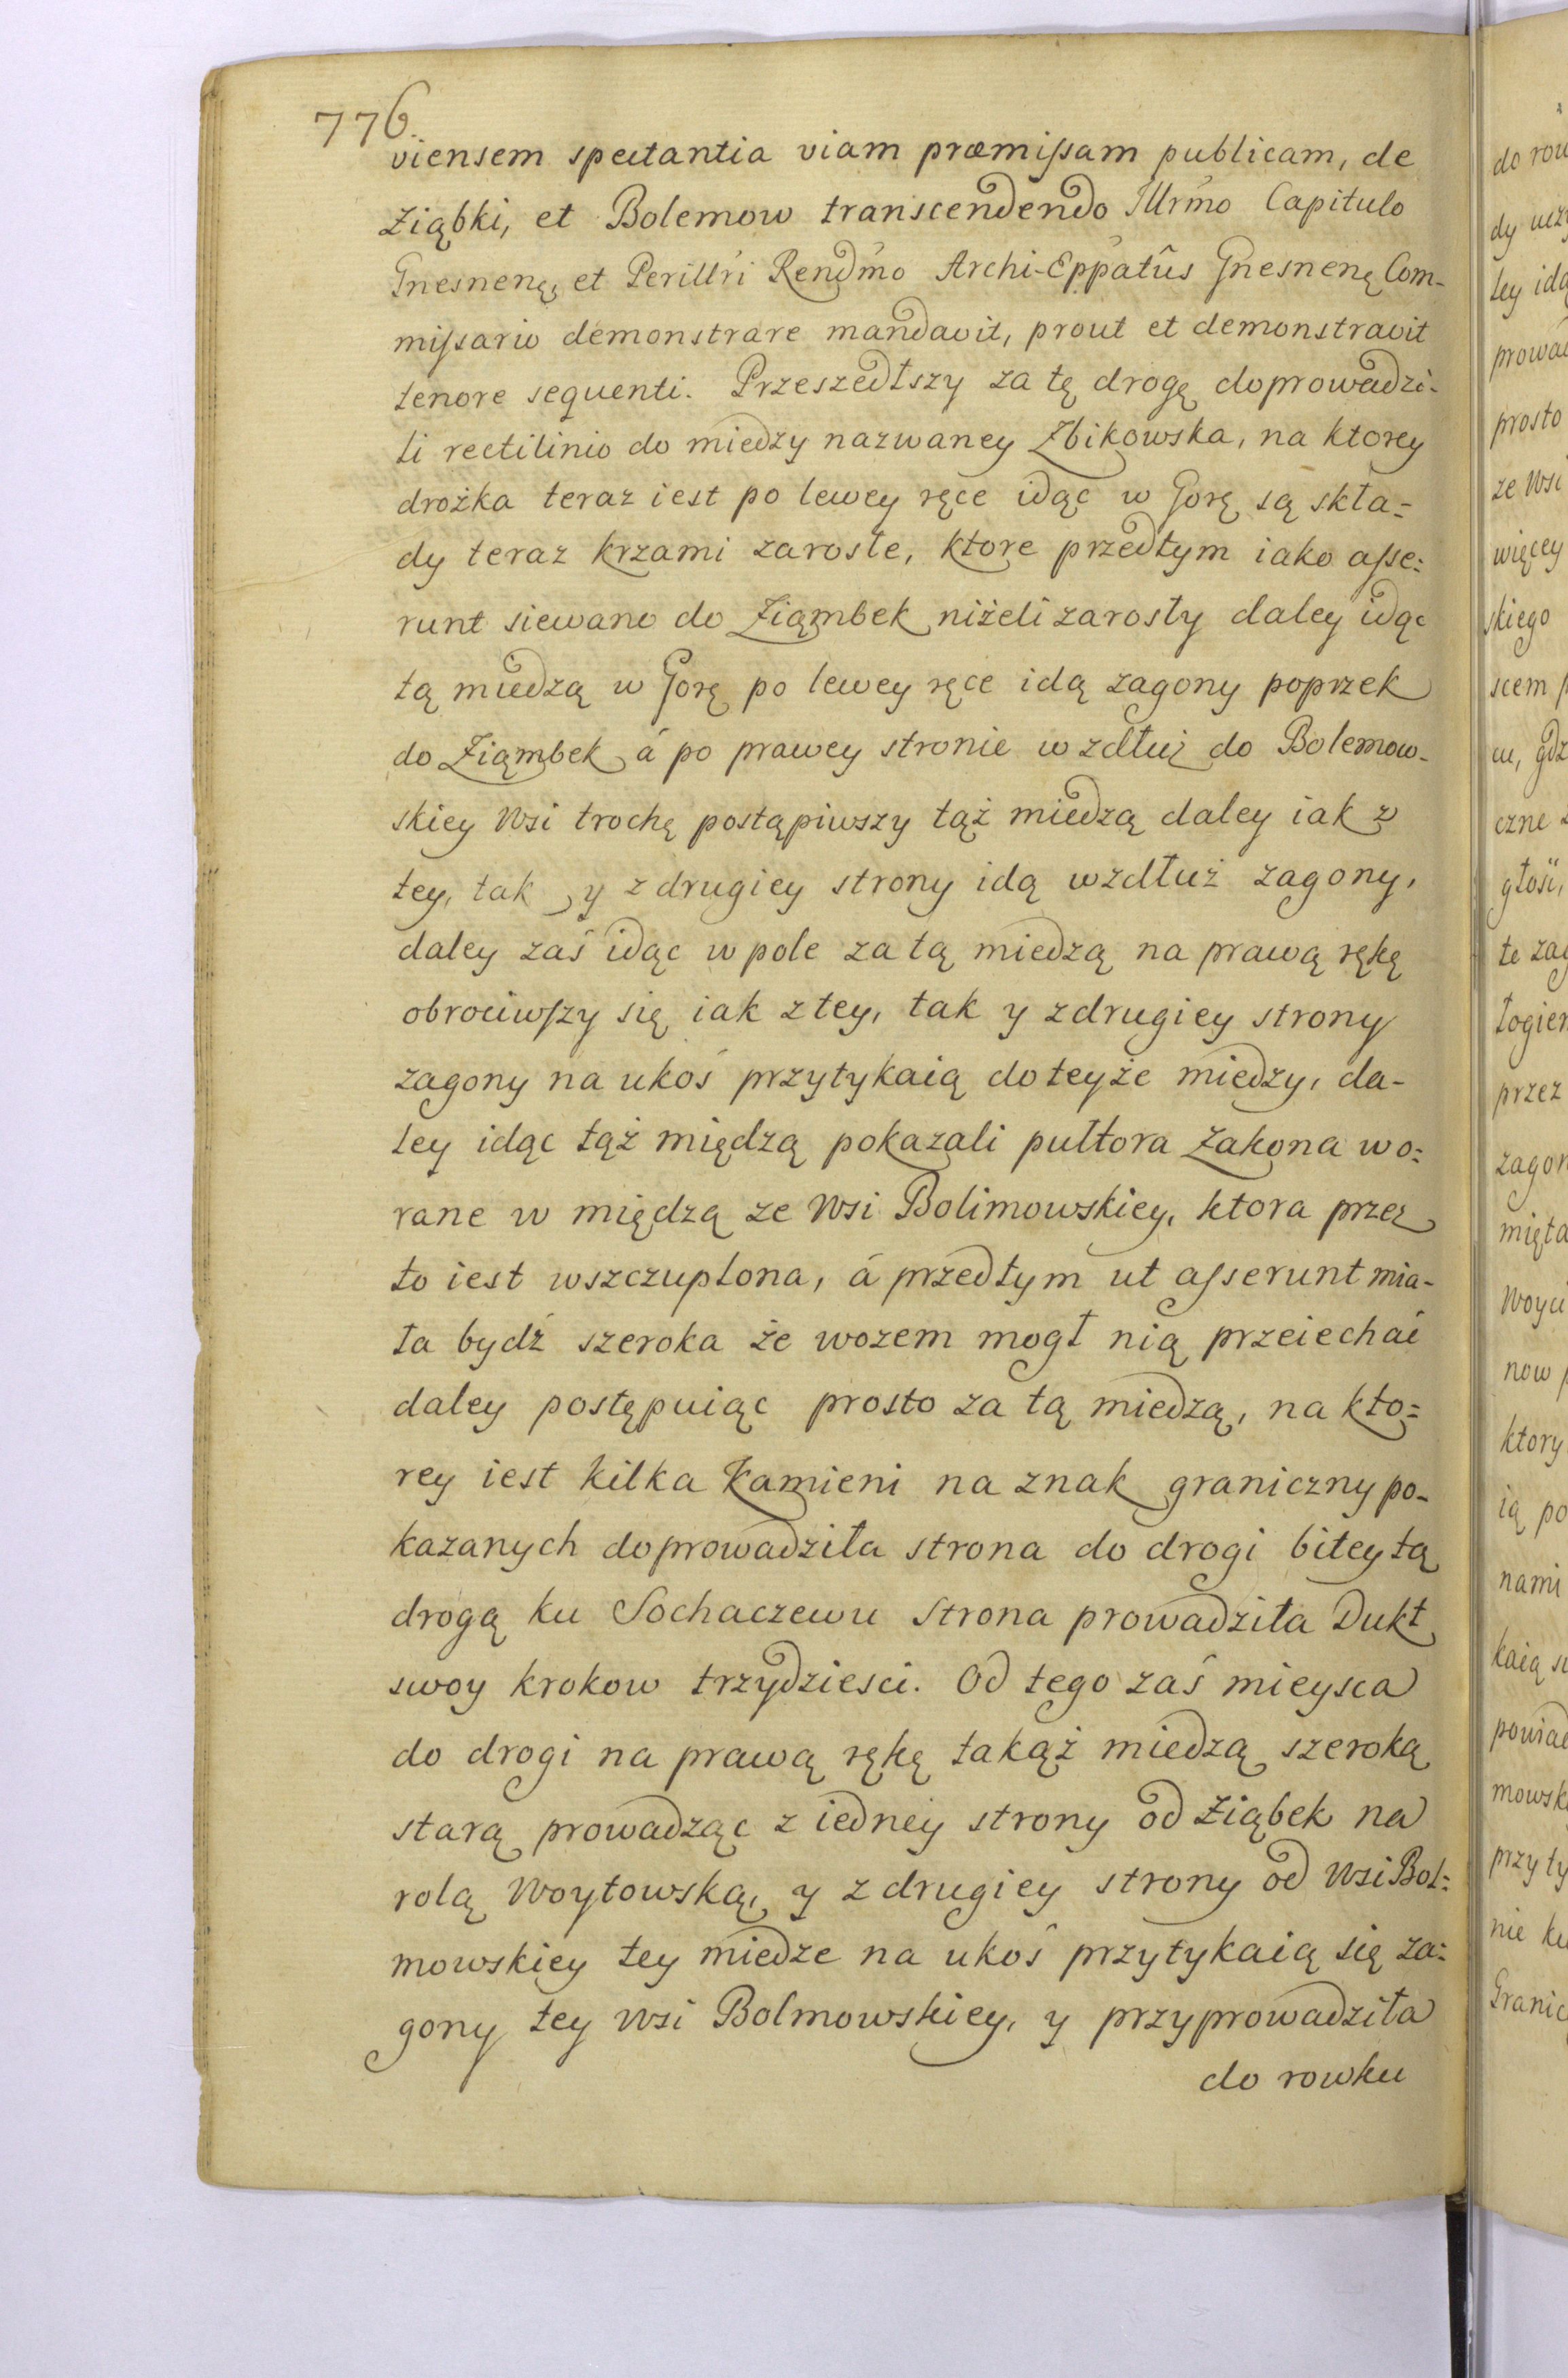 776.
viensem spectantia viam præmissam publicam, de
Ziąbki, et Bolemow transcendendo Illrḿo Capitulo
Gnesnenę, et Perillŕi Rendḿo Archi-Eppatûs Gnesnenę Com-
missario demonstrare mandavit, prout et demonstravit
tenore sequenti. Przeszedłszy za tę drogę doprowadzi-
li rectilinio do miedzy nazwaney Zbikowska, na ktorey
drożka teraz iest po lewey ręce idąc w Gorę są skła=
dy teraz krzami zarosłe, ktore przedtym iako asse=
runt siewano do Ziąmbek niżeli zarosły daley idąc
tą miedzą w Gorę po lewey ręce idą zagony poprzek
do Ziąmbek á po prawey stronie w zdłuż do Bolemow-
skiey Wsi trochę postąpiwszy tąż miedzą daley iak z
tey, tak y z drugiey strony idą wzdłuż zagony,
daley zaś idąc w pole za tą miedzą na prawą rękę
obrociwszy się iak z tey, tak y z drugiey strony
zagony na ukoś przytykaią do teyże miedzy, da-
ley idąc tąż międzą pokazali pułtora Zakona wo=
rane w międzą ze Wsi Bolimowskiey, ktora przez
to iest wszczuplona, á przedtym ut asserunt mia-
ła bydź szeroka że wozem mogł nią przeiechać
daley postępuiąc prosto za tą miedzą, na kto=
rey iest kilka Kamieni na znak graniczny po-
kazanych doprowadziła strona do drogi bitey tą
drogą ku Sochaczewu Strona prowadziła Dukt
swoy krokow trzydziesci. Od tego zaś mieysca
do drogi na prawą rękę takąż miedzą szeroką
starą prowadząc z iedney strony od Ziąbek na
rolą Woytowską, y z drugiey strony od Wsi Bol=
mowskiey tey miedze na ukoś przytykaią się za=
gony tey Wsi Bolmowskiey, y przyprowadziła
do rowku